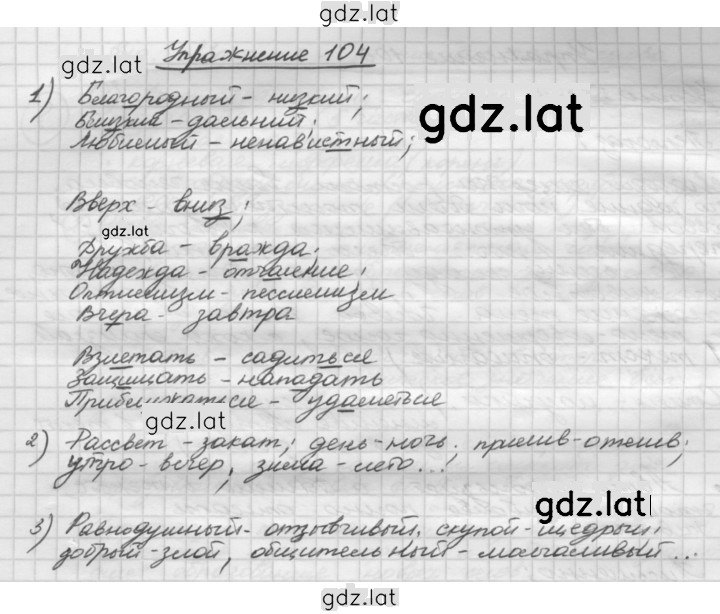 gdz.lat
Упражнение 104
gdz.lat
1) Благородный - низкий;
gdz.lat
Близкий - дальний;
Любимый - ненавистный;
Вверх - вниз;
gdz.lat
Дружба - вражда;
Надежда - отчаяние;
Оптимизм - пессимизм
Вчера - завтра
Взлетать - садиться
Защищать - нападать
Приближаться - удаляться
gdz.lat
2) Рассвет - закат; день - ночь; прилив - отлив;
утро - вечер, зима - лето...
gdz.lat
3) Равнодушный - отзывчивый, скупой - щедрый;
добрый - злой, общительный - молчаливый...
gdz.lat